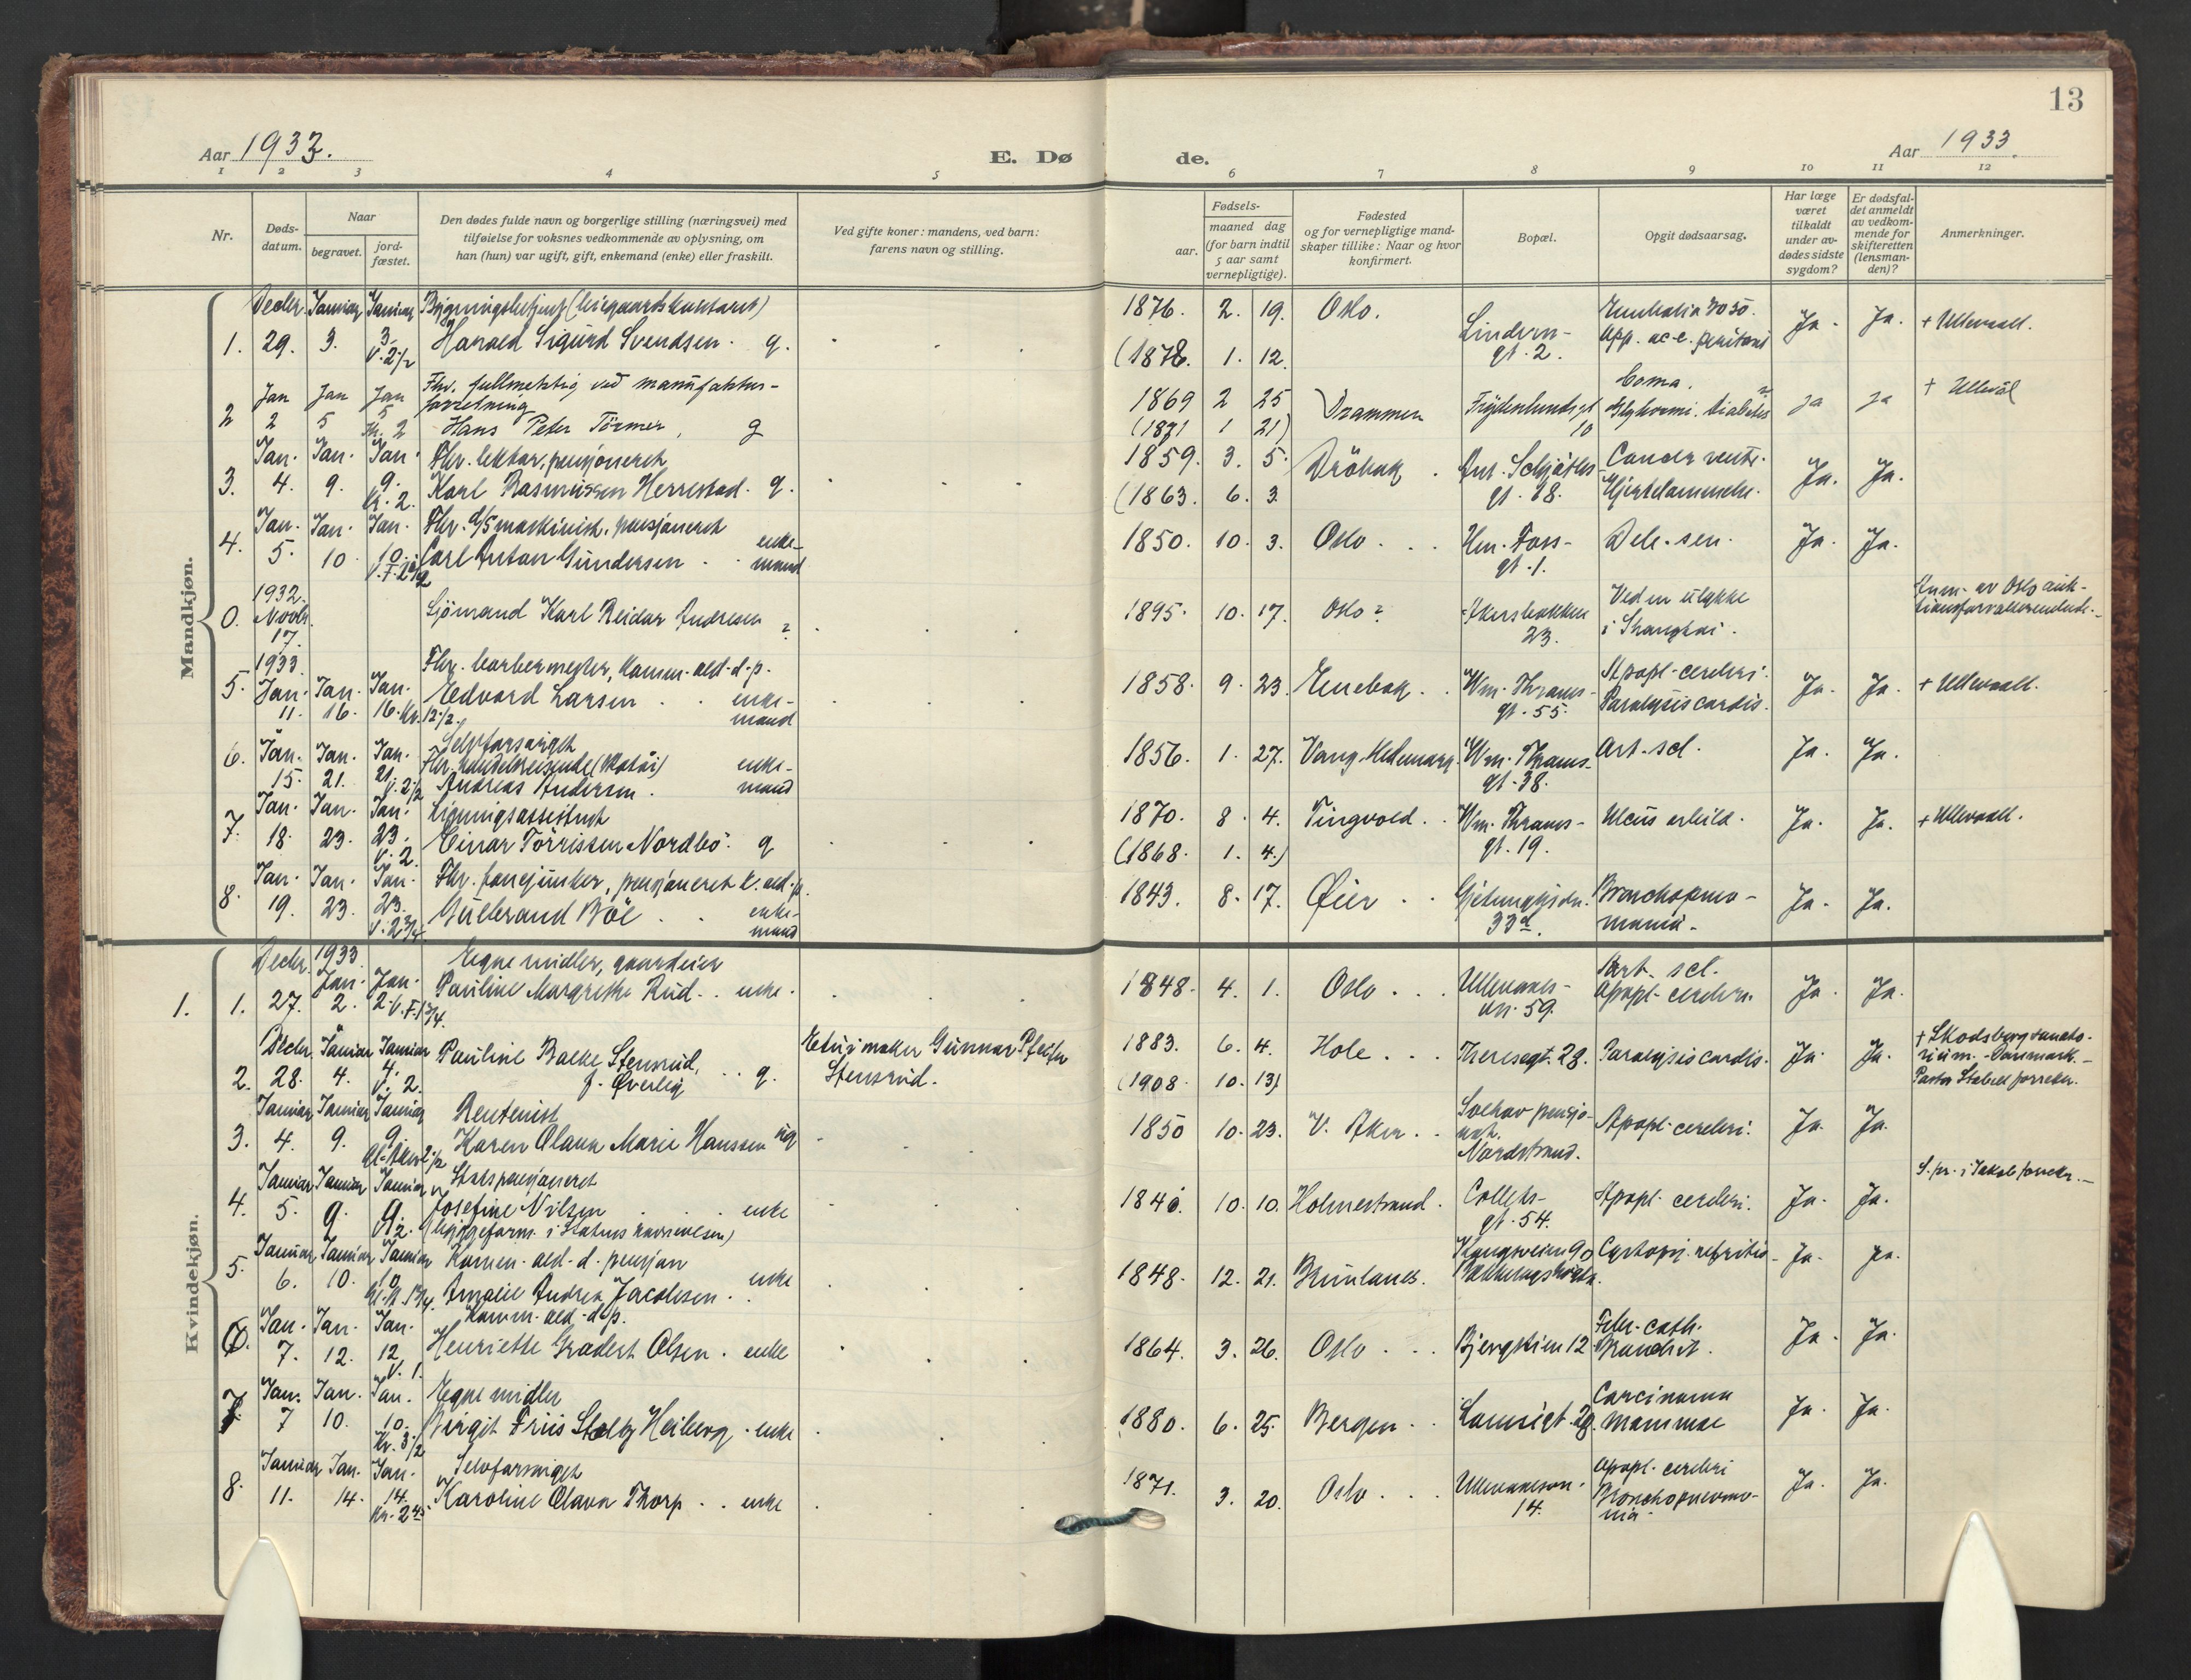 13
Aar 1933.
E. Dø
de.
Aar 1933.
1 2 3 4 5 6 7 8 9 10 11 12
Nr.
Døds-
datum.
Naar
begravet.
jord-
fæstet.
Den dødes fulde navn og borgerlige stilling (næringsvei) med
tilføielse for voksnes vedkommende av oplysning, om
han (hun) var ugift, gift, enkemand (enke) eller fraskilt.
Ved gifte koner: mandens, ved barn:
farens navn og stilling.
Fødsels-
aar.
maaned dag
(for barn indtil
5 aar samt
vernepligtige).
Fødested
og for vernepligtige mand-
skaper tillike: Naar og hvor
konfirmert.
Bopæl.
Opgit dødsaarsag.
Har læge
været
tilkaldt
under av-
dødes sidste
sygdom?
Er dødsfal-
det anmeldt
av vedkom-
mende for
skifteretten
(lensman-
den)?
Anmerkninger.
Mandkjøn.
Decbr. Januar Januar 1876. 2. 19. Oslo.
1. 29. 3. 3. Harald Sigurd Svendsen. g. Lindern- Ja. Ja. + Ullevaall.
V. 2 1/2 (1878. 1. 12. gt. 2.
Jan Jan Jan Fhv. fullmektig ved manufaktur- Coma. + Ullevål
forretning 1869 2 25 Drammen Frydenlundsgt diabetes ja ja
2 2 5 5 Hans Peter Tórmer, g (1871 1 21) 10
Kr. 2
Jan. Jan. Jan. Fhv. lektor, pensjonert 1859. 3. 5. Dröbak. Ant. Schjöths- Cancer ventr.
3. 4. 9. 9. Karl Rasmussen Herrestad. g. (1863. 6. 3. gt. 28. Hjertelammelse. Ja. Ja.
Kr. 2.
Jan. Jan. Jan. Fhv. maskinist, pensjonert enke-
4. 5. 10 10. Carl Anton Gundersen mand 1850. 10. 3. Oslo. Hm. Foss- Ja. Ja.
gt. 1.
1932.
0. Novbr. Sjömand Karl Reidar Andresen ? 1895. 10. 17. Oslo? Akersbakken Ved en ulykke
17. 23. i Shanghai.
1933. Fhv. barbermester, komm. ald. d. p. Apopl. cerebri.
5. Jan. Jan. Jan. Edvard Larsen enke- 1858. 9. 23. Enebak. Wm. Thranes- Paralysis cordis. Ja. Ja. + Ullevaall.
11. 16. 16. Kr. 12 1/2. mand gt. 55.
Selvforsørget
6. Jan. Jan. Jan. Fhv. handelsreisende enke- 1856. 1. 27. Vang, Hedemark. Wm. Thranes- Art. scl. Ja. Ja.
15. 21. 21. Andreas Andersen. mand gt. 38.
V. 2 1/2
Jan. Jan. Jan. Ligningsassistent 1870. 8. 4. Tingvold. Wm. Thranes- Ja. Ja. + Ullevaall.
7. 18. 23. 23. Einar Törrissen Nordbö. g (1868. 1. 4.) gt. 19.
V. 2.
Jan. Jan. Jan. Fhv. pensjonert k. ald. p.
8. 19. 23. 23. Gulbrand Böe enke- 1843. 8. 17. Øier Bronchopneu- Ja. Ja.
V. 2 3/4. mand 33 monia.
Kvindekjøn.
Decbr. 1933. Egne midler, gaardeier Art. scl.
1. 1. Jan. Jan. Pauline Margrethe Rud. enke. 1848. 4. 1. Oslo Ullevaals- Apopl. cerebri. Ja. Ja.
27. 2. 2. V. F. 1 3/4. vn. 59.
Decbr. Januar Januar Pauline Bache Stensrud, Etuimaker Gunnar Pfeifer 1883. 6. 4. Hole Theresegt. 28. Paralysis cordis. Ja. Ja. + Skodsborg sanato-
2. 28. 4. 4. f. Øverlig g. Stensrud. (1908. 10. 13) rium. - Danmark. -
V. 2.
Januar Januar Januar Rentenist Solhav pensjo-
3. 4. 9. 9. Karen Olava Marie Hanssen ug 1850 10. 23. V. Aker. nat, Apopl. cerebri. Ja. Ja.
Nordstrand.
Januar Januar Januar
4. 5. 9. 9. Josefine Nilsen enke 1840. 10. 10. Holmestrand. Colletts- Apopl. cerebri. Ja. Ja.
gt. 54.
Januar Januar Januar Komm. ald. d. pensjon Kongsveien 90
5. 6. 10. 10. Amalie Andrea Jacobsen. enke 1848. 12. 21. Ja. Ja.
Jan. Jan. Jan. Komm. ald. d. p.
6. 7. 12. 12. Henriette Gradert Olsen. enke 1864. 3. 26. Oslo Bjergstien 12 Febr. cath. Ja. Ja.
V. 1. Bronchit.
Jan. Jan. Jan. Egne midler Carcinoma
7. 7 10. 10. Birgit Friis Stoltz Heiberg. enke 1880. 6. 25. Bergen mammae Ja. Ja.
Kr. 3 1/2
Januar Jan. Jan. Selvforsørget Apopl. cerebri
8. 11. 14. 14. Karoline Olava Thorp enke 1871. 3. 20. Oslo Ullevaalsvn. Bronchopneumo- Ja. Ja.
14. nia.